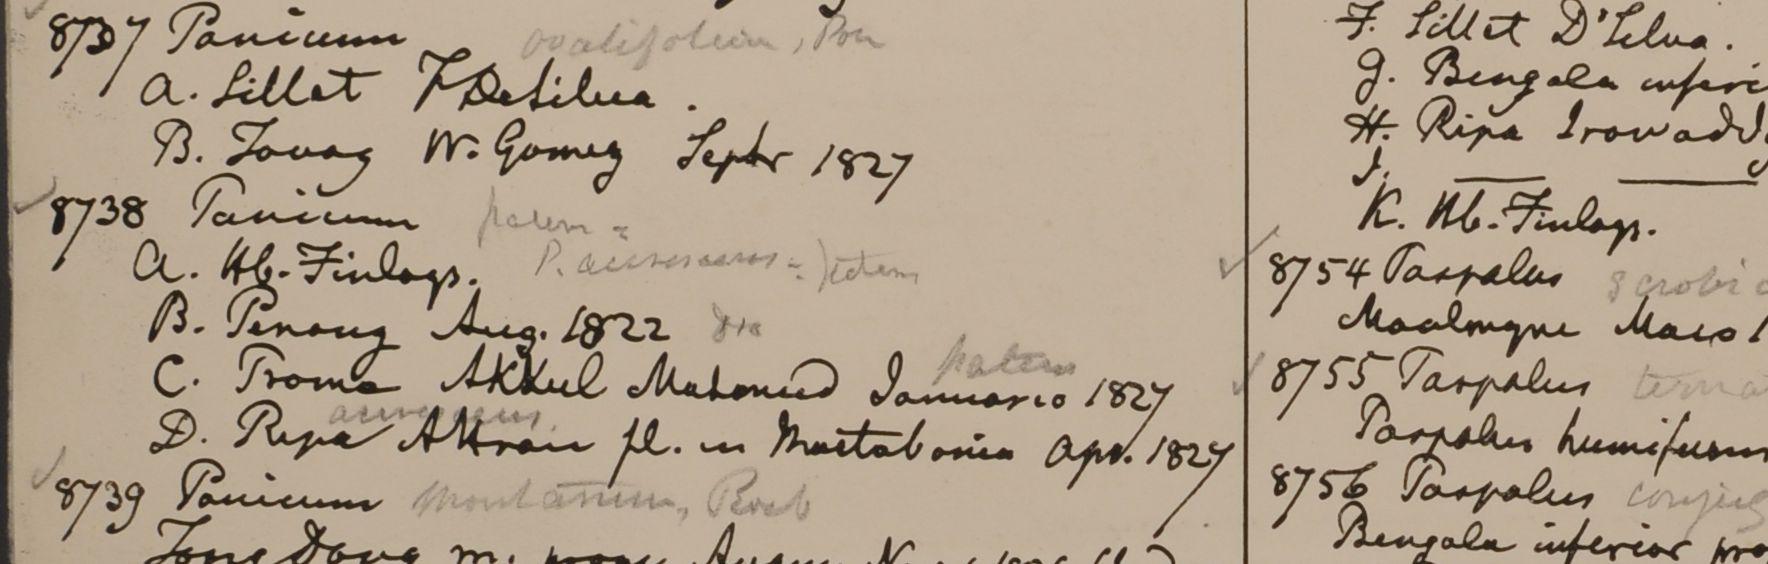 8737 Panicum ovalifolium, Poir
A. Sillet F DeSilva.
B. Tavoy W. Gomez Septr 1827
8738 Panicum patens =
A. Hb. Finlays. P. =
B. Penang Aug. 1822
patens
C. Prome Akkul Mahomed Januario 1827
D. Ripa Attran fl. in Martabania Apr. 1827
8739 Panicum montanum, Roxb
F. Sillet D'Silva.
G. Bengala inferi
H. Ripa Irawadd
I.
K. Hb. Finlays.
8754 Paspalus scrobic
Moalmyne
8755 Paspalus
Paspalus humifusum
8756 Paspalus conjug
Bengala inferior